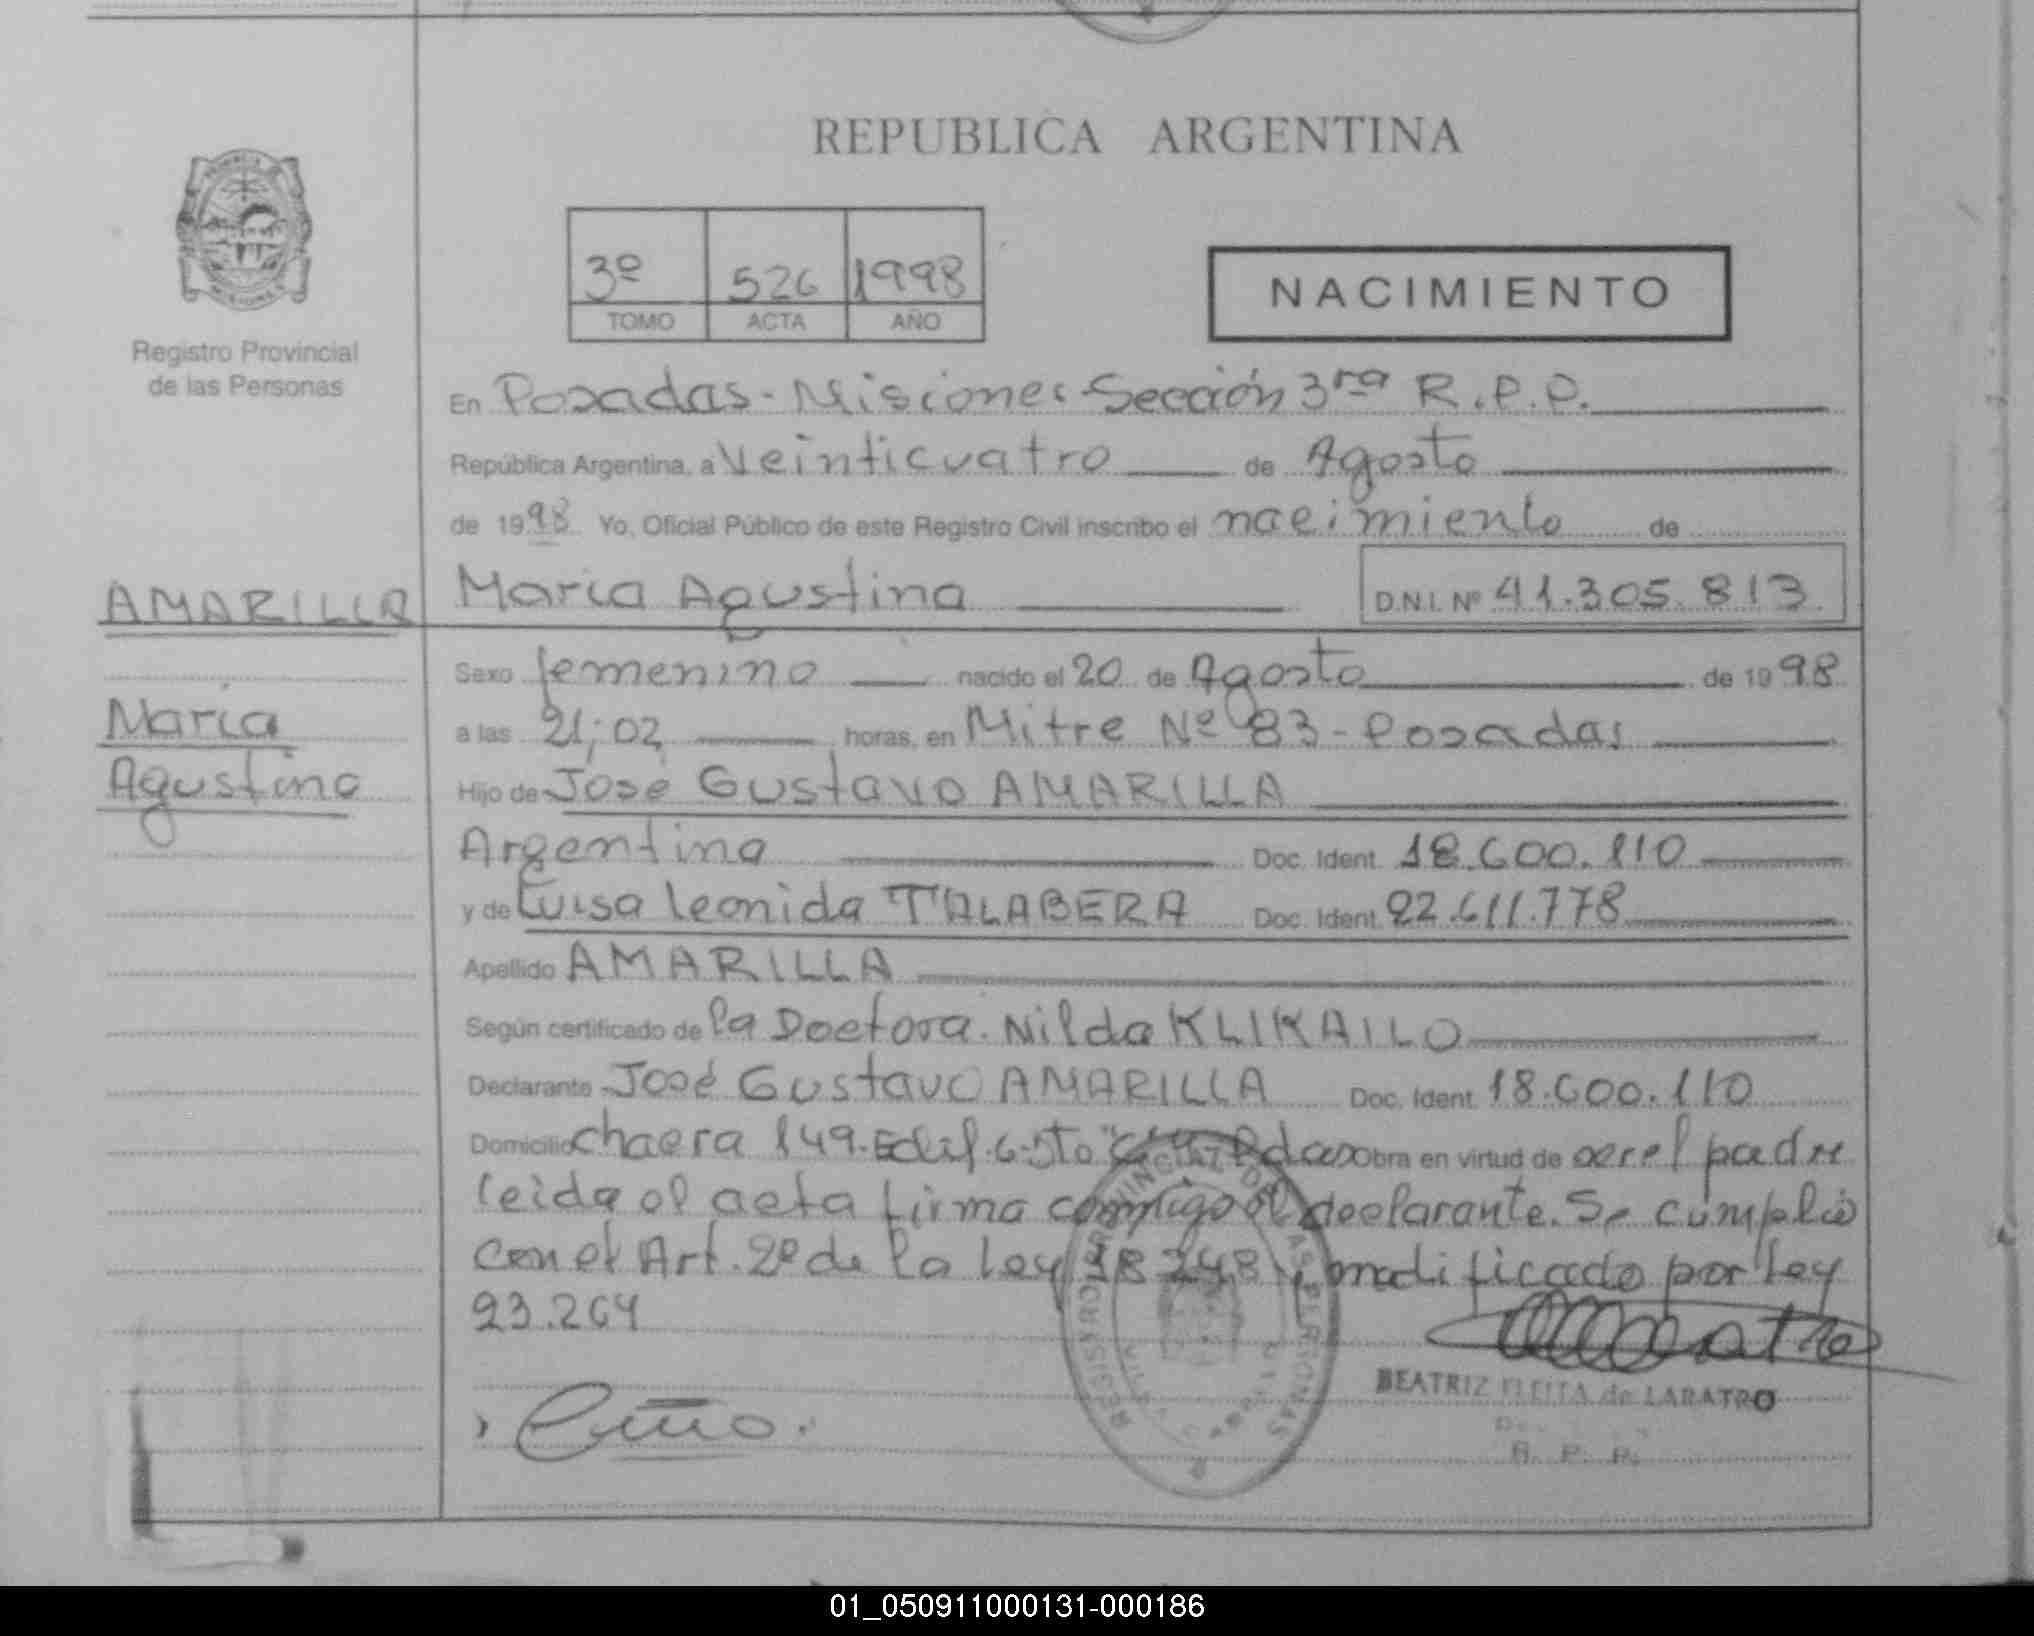 REPUBLICA ARGENTINA
3º 526 1998
TOMO ACTA AÑO
NACIMIENTO
Registro Provincial
de las Personas
En Posadas - Misiones Sección 3ra R.P.P.
República Argentina, a Veinticuatro de Agosto
de 1998 Yo, Oficial Público de este Registro Civil inscribo el nacimiento de
AMARILLA
María Agustina
D.N.I. Nº 41.305.813
María
Agustina
Sexo femenino nacido el 20 de Agosto de 1998
a las 21;02 horas, en Mitre Nº 83 - Posadas
Hijo de José Gustavo AMARILLA
Argentina Doc. Ident. 18.600.110
y de Luisa Leonida TALABERA Doc. Ident. 22.611.778
Apellido AMARILLA
Según certificado de la Doctora. Nilda KLIKAILO
Declarante José Gustavo AMARILLA Doc. Ident. 18.600.110
Domicilio chacra 149. Edif. 6. Dto Pdas Obra en virtud de ser el padre
leida el acta firma conmigo el declarante. Se cumplió
con el Art. 2º de la ley 18248 y modificado por ley
23.264
REGISTRO PROVINCIAL DE LAS PERSONAS
BEATRIZ FLEITA de LABATRO
R. P. P.
01_050911000131-000186